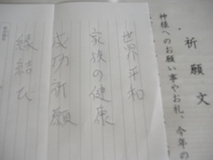 祈願文
神様へのお願い事やお礼、今年の
世界平和
家族の健康
成功祈願
縁結び